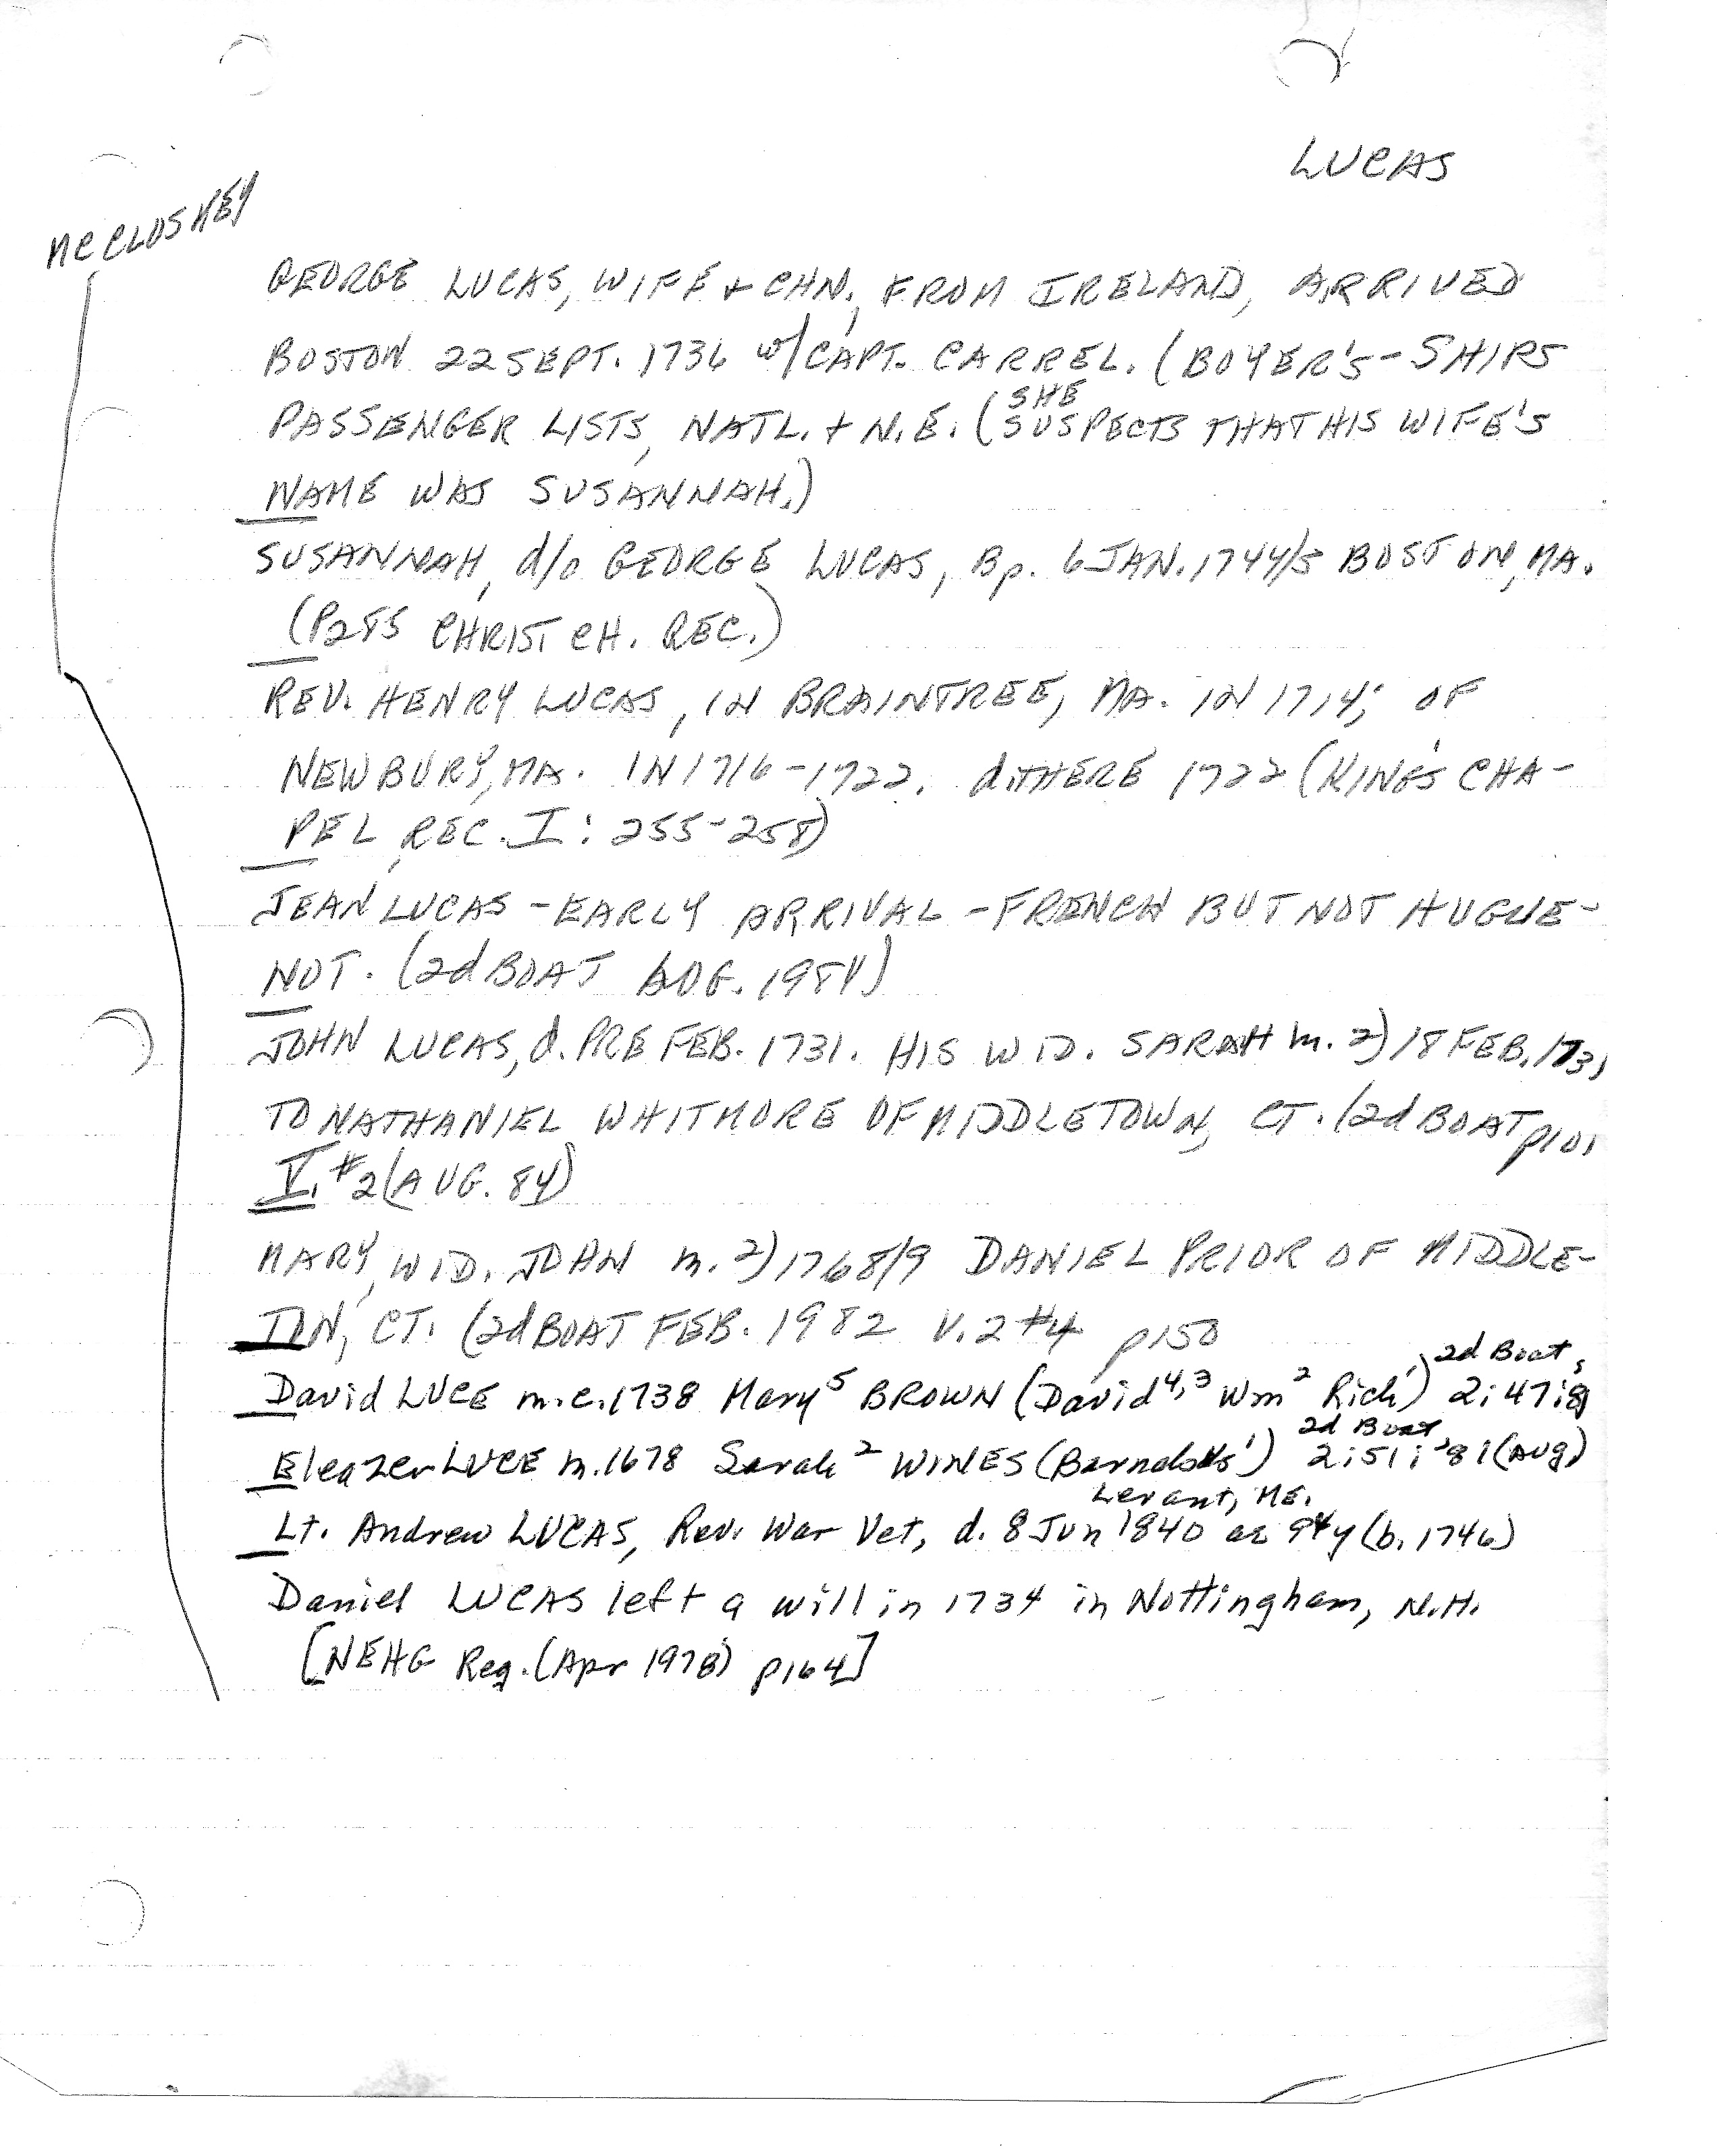 LUCAS
MCCLOSKEY
GEORGE LUCAS, WIFE + CHN., FROM IRELAND, ARRIVED
BOSTON 22 SEPT. 1736 w/CAPT. CARREL. (BOYER'S - SHIPS
PASSENGER LISTS, NATL. + N.E. (SHE SUSPECTS THAT HIS WIFE'S
NAME WAS SUSANNAH.)
SUSANNAH, d/o GEORGE LUCAS, Bp. 6 JAN. 1744/5 BOSTON, MA.
(P285 CHRIST CH. REC.)
REV. HENRY LUCAS, IN BRAINTREE, MA. IN 1714; OF
NEWBURY, MA. IN 1716-1722. d. THERE 1722 (KING'S CHA-
PEL REC. I: 255-258)
JEAN LUCAS - EARLY ARRIVAL - FRENCH BUT NOT HUGUE-
NOT. (2d BOAT AUG. 1984)
JOHN LUCAS, d. PRE FEB. 1731. HIS WID. SARAH m. 2) 18 FEB. 1731
TO NATHANIEL WHITMORE OF MIDDLETOWN, CT. (2d BOAT p101
V. #2 (AUG. 84)
MARY, WID. JOHN m. 2) 1768/9 DANIEL PRIOR OF MIDDLE-
TON, CT. (2d BOAT FEB. 1982 V. 2 #4 p150
2d Boat,
David LUCE m.c. 1738 Mary⁵ BROWN (David⁴,³ Wm² Rich¹) 2:47:
2d Boat
Eleazer LUCE m. 1678 Sarah² WINES (Barnabas¹) 2:51: '81 (Aug)
Levant, ME.
Lt. Andrew LUCAS, Rev. War Vet, d. 8 Jun 1840 ae 94y (b. 1746)
Daniel LUCAS left a will in 1734 in Nottingham, N.H.
[NEHG Reg. (Apr 1978) p164]